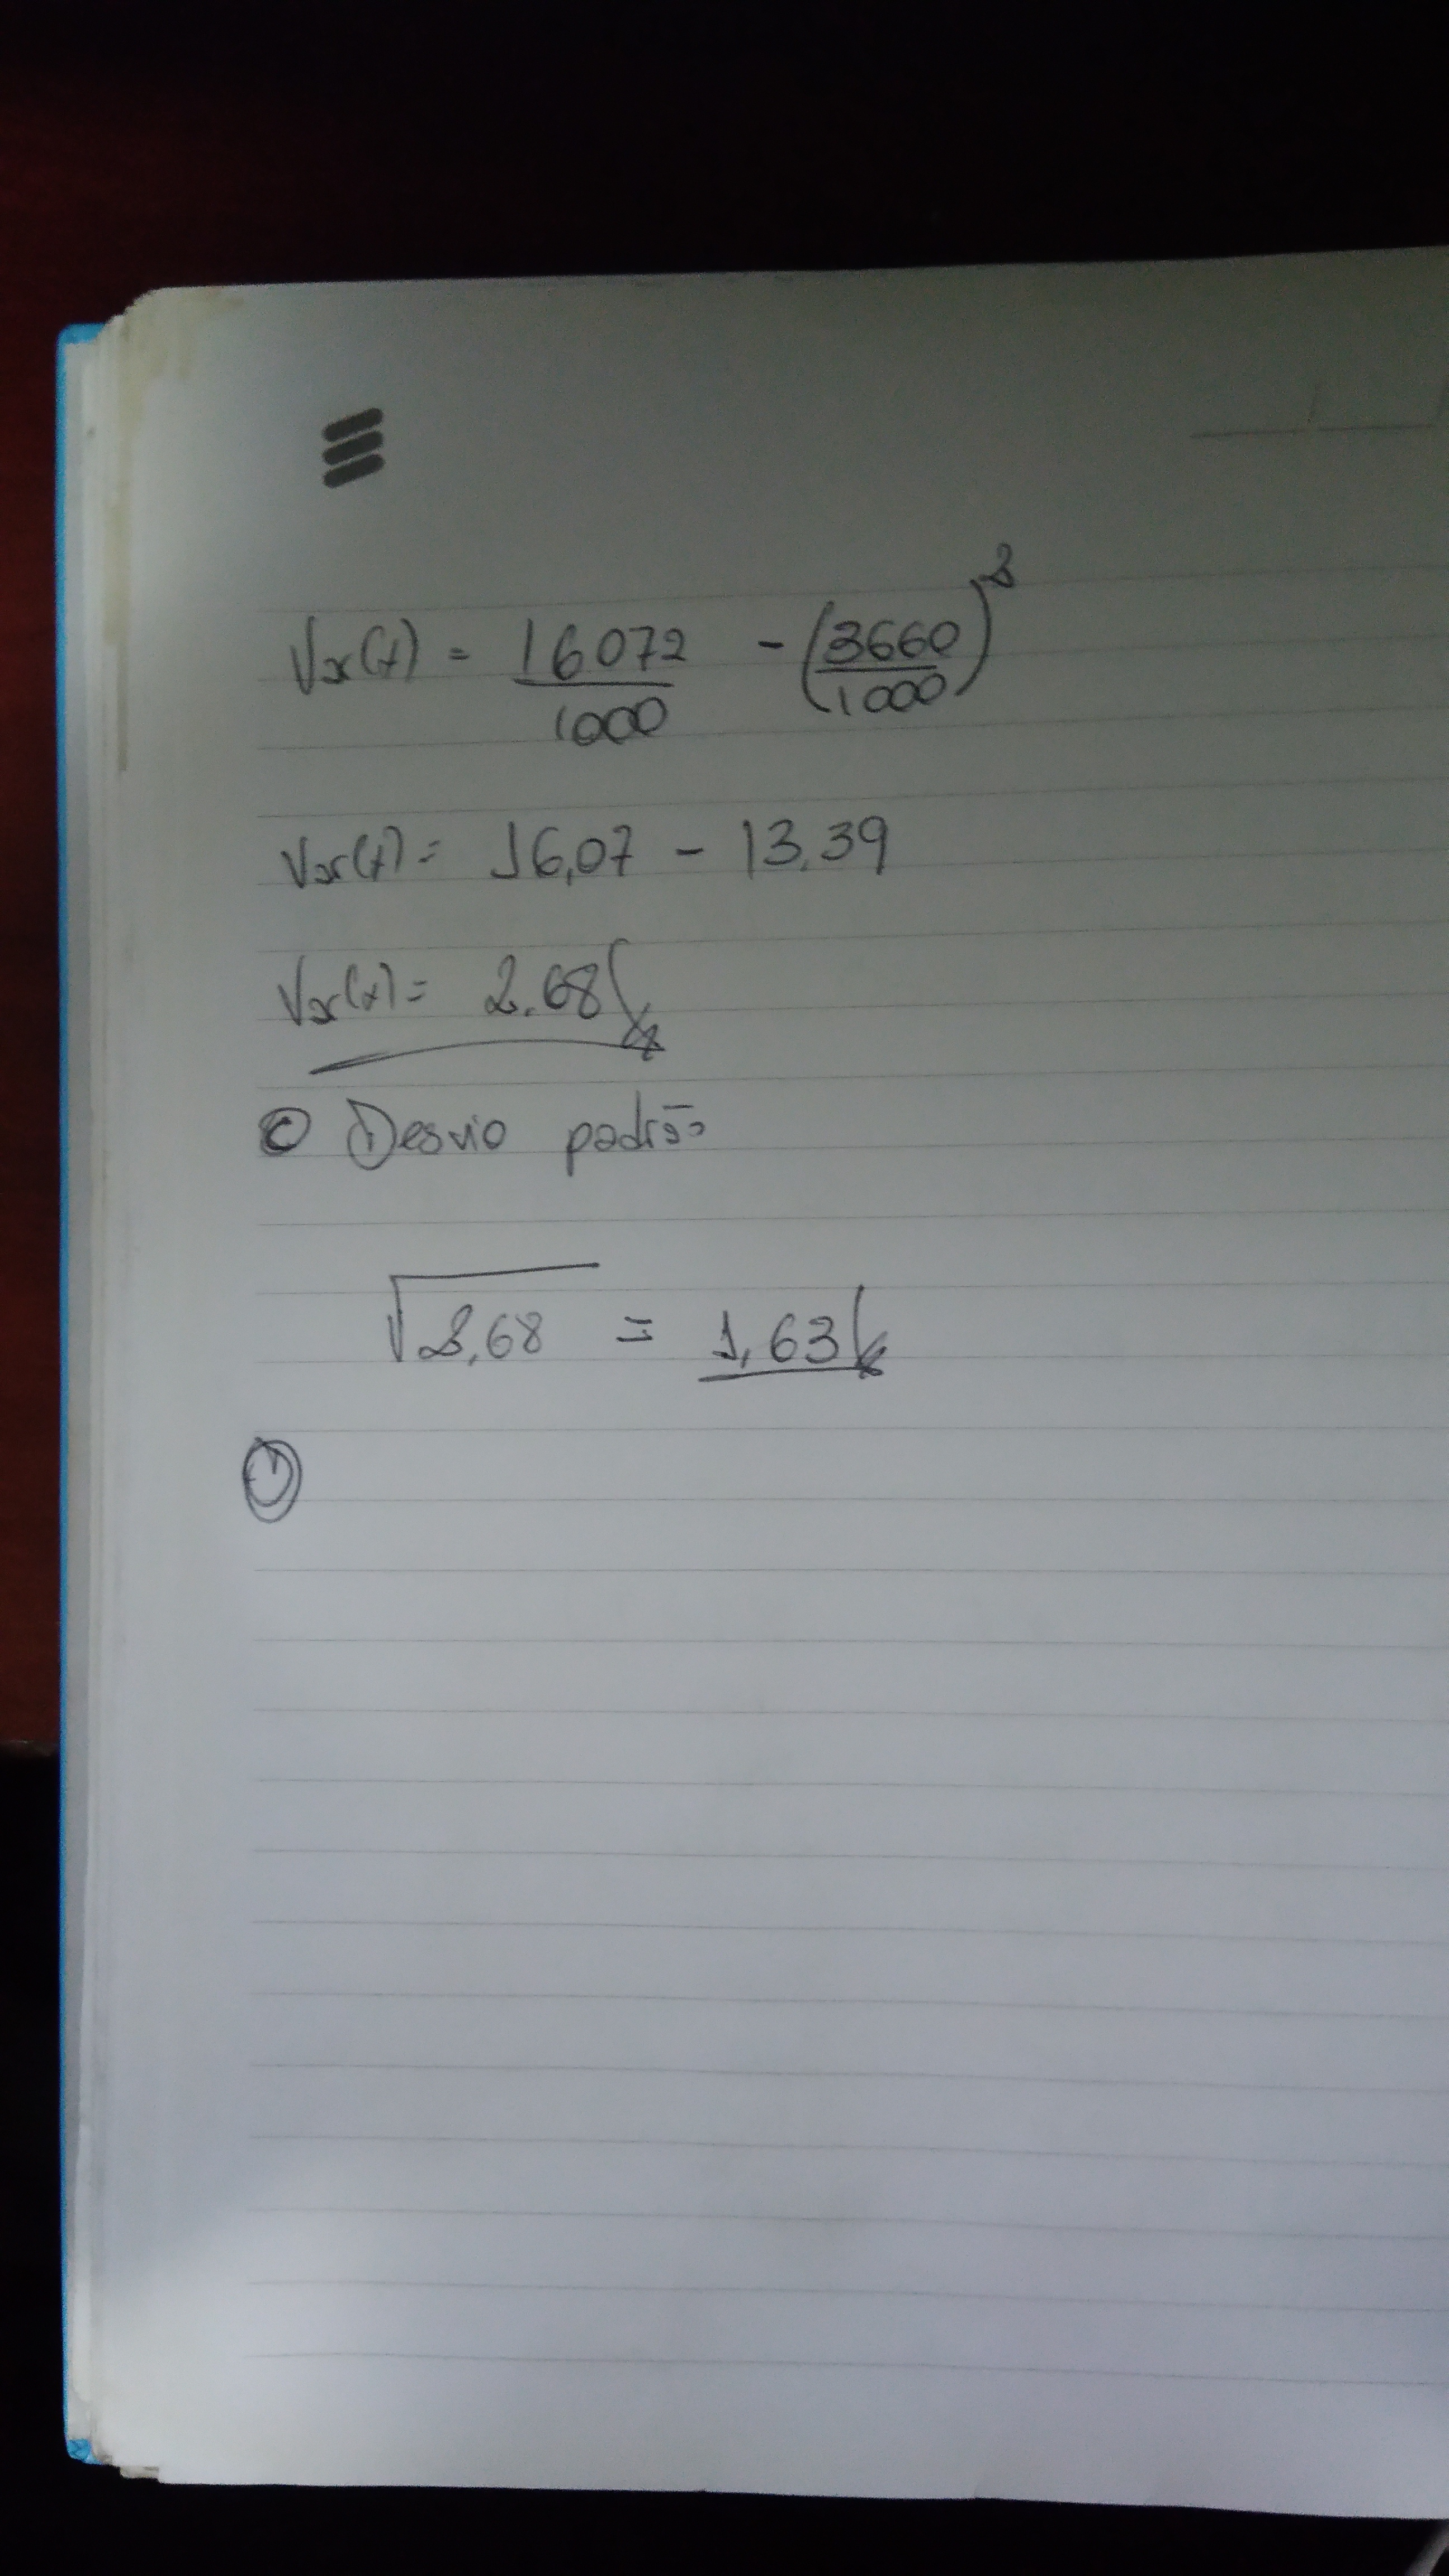 Var(x) = 16072/1000 - (3660/1000)²
Var(x) = 16,07 - 13,39
Var(x) = 2,68
c) Desvio padrão
√2,68 = 1,63